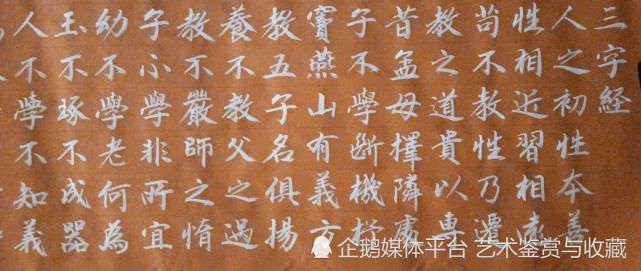 三字經
人之初性本善
性相近習相遠
苟不教性乃遷
教之道貴以專
昔孟母擇隣處
子不學斷機杼
竇燕山有義方
教五子名俱揚
養不教父之過
教不嚴師之惰
子小學非所宜
幼不學老何為
玉不琢不成器
人不學不知義
企鹅媒体平台 艺术鉴赏与收藏